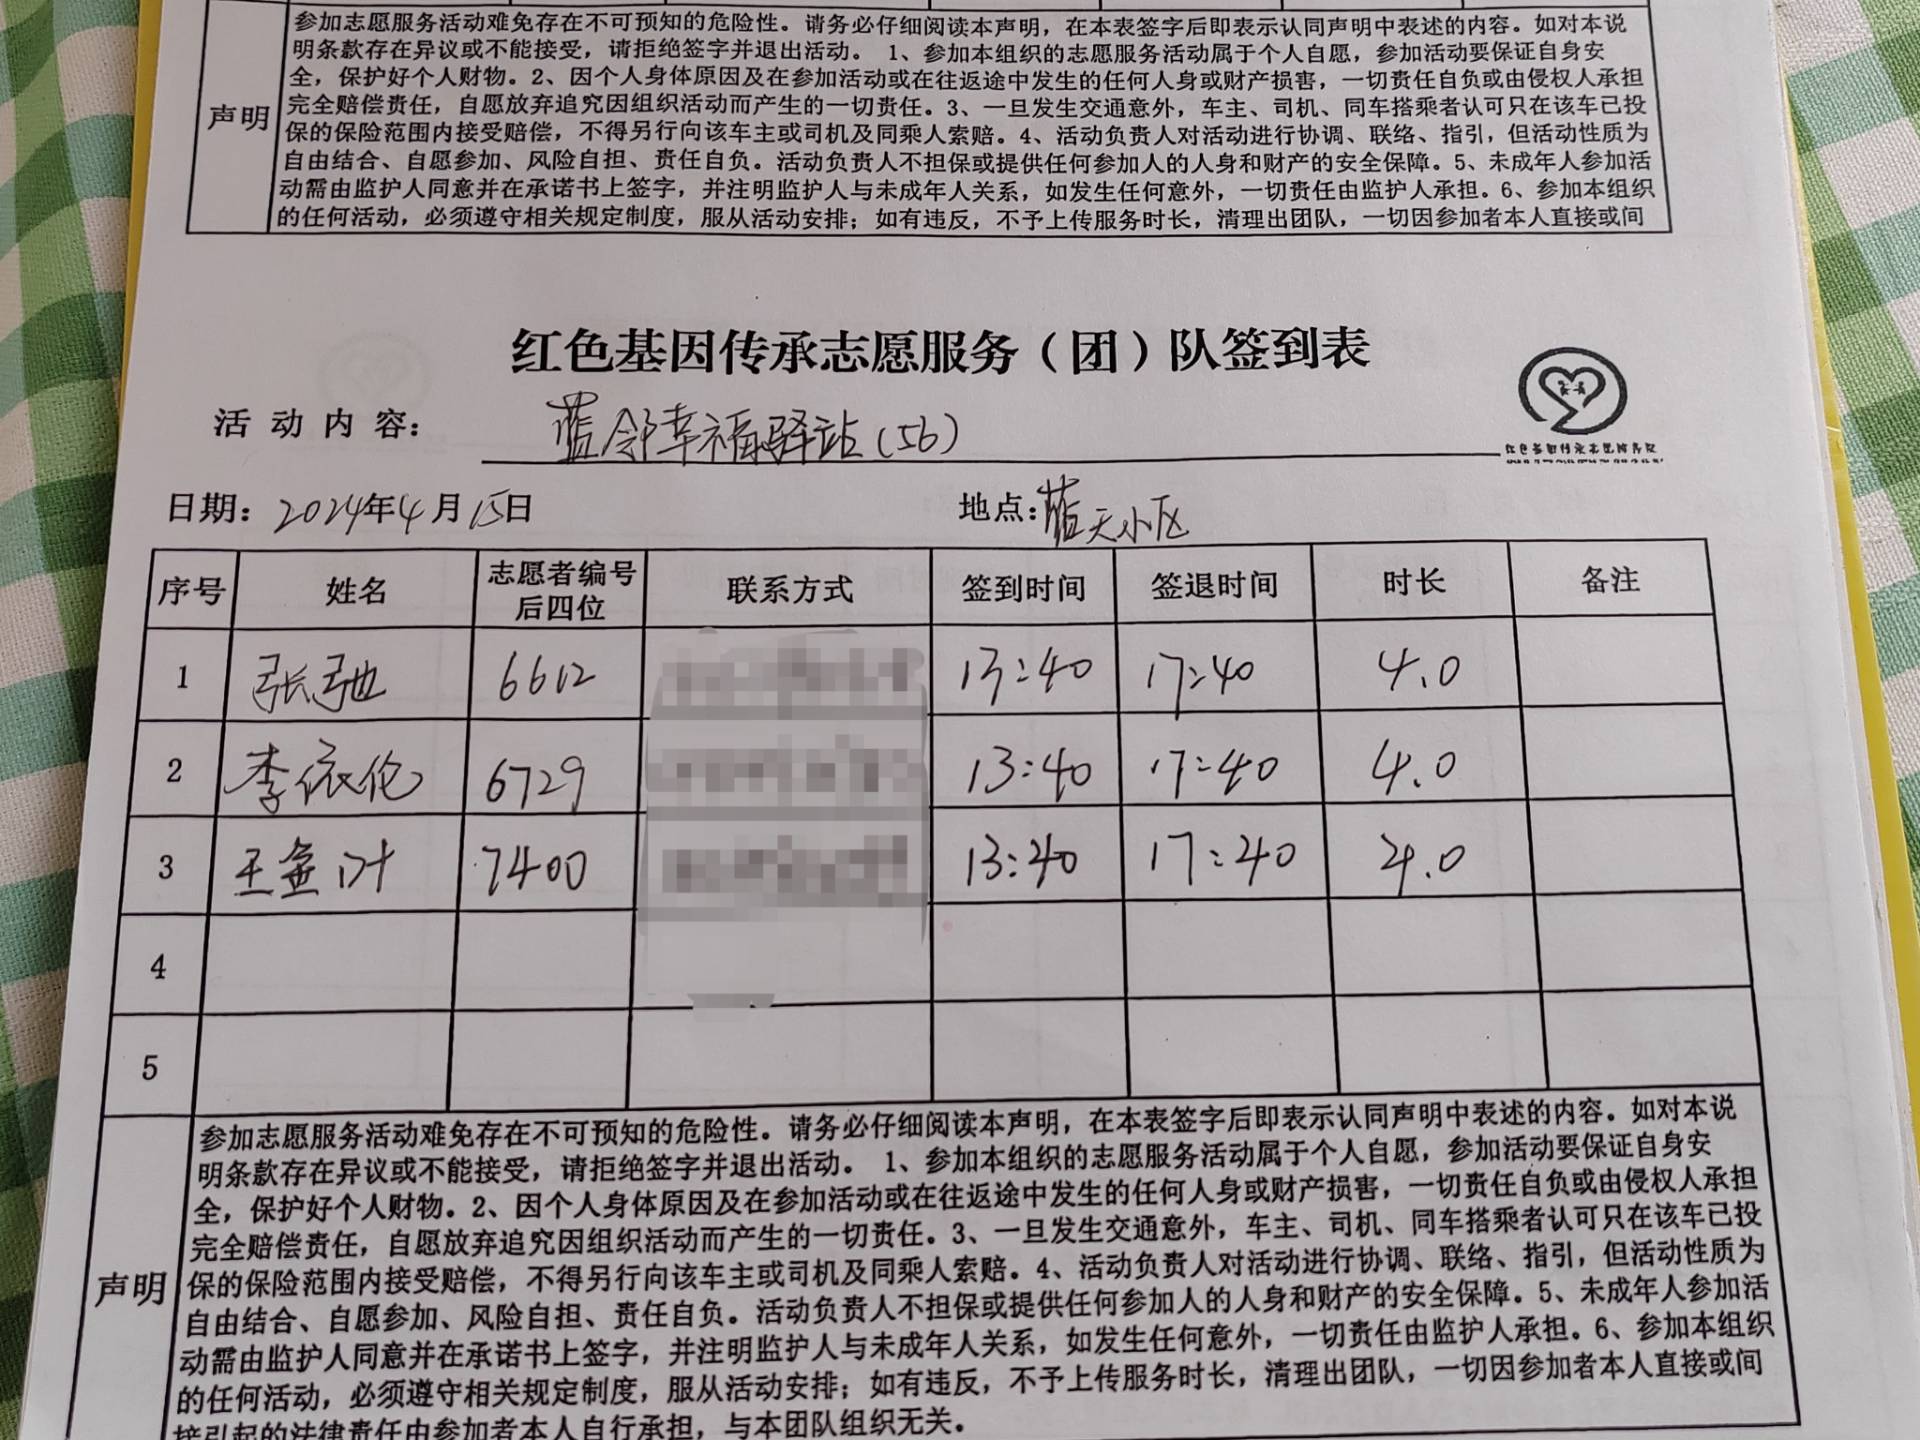 参加志愿服务活动难免存在不可预知的危险性。请务必仔细阅读本声明，在本表签字后即表示认同声明中表述的内容。如对本说
明条款存在异议或不能接受，请拒绝签字并退出活动。 1、参加本组织的志愿服务活动属于个人自愿，参加活动要保证自身安
全，保护好个人财物。2、因个人身体原因及在参加活动或在往返途中发生的任何人身或财产损害，一切责任自负或由侵权人承担
声明
完全赔偿责任，自愿放弃追究因组织活动而产生的一切责任。3、一旦发生交通意外，车主、司机、同车搭乘者认可只在该车已投
保的保险范围内接受赔偿，不得另行向该车主或司机及同乘人索赔。4、活动负责人对活动进行协调、联络、指引，但活动性质为
自由结合、自愿参加、风险自担、责任自负。活动负责人不担保或提供任何参加人的人身和财产的安全保障。5、未成年人参加活
动需由监护人同意并在承诺书上签字，并注明监护人与未成年人关系，如发生任何意外，一切责任由监护人承担。6、参加本组织
的任何活动，必须遵守相关规定制度，服从活动安排；如有违反，不予上传服务时长，清理出团队，一切因参加者本人直接或间
红色基因传承志愿服务（团）队签到表
活动内容： 蓝邻幸福驿站(56)
日期：2024年4月15日 地点：蓝天小区
序号 姓名 志愿者编号后四位 联系方式 签到时间 签退时间 时长 备注
1 张弛 6612 13:40 17:40 4.0
2 李依伦 6729 13:40 17:40 4.0
3 王 叶 7400 13:40 17:40 4.0
4
5
参加志愿服务活动难免存在不可预知的危险性。请务必仔细阅读本声明，在本表签字后即表示认同声明中表述的内容。如对本说
明条款存在异议或不能接受，请拒绝签字并退出活动。 1、参加本组织的志愿服务活动属于个人自愿，参加活动要保证自身安
全，保护好个人财物。2、因个人身体原因及在参加活动或在往返途中发生的任何人身或财产损害，一切责任自负或由侵权人承担
完全赔偿责任，自愿放弃追究因组织活动而产生的一切责任。3、一旦发生交通意外，车主、司机、同车搭乘者认可只在该车已投
声明
保的保险范围内接受赔偿，不得另行向该车主或司机及同乘人索赔。4、活动负责人对活动进行协调、联络、指引，但活动性质为
自由结合、自愿参加、风险自担、责任自负。活动负责人不担保或提供任何参加人的人身和财产的安全保障。5、未成年人参加活
动需由监护人同意并在承诺书上签字，并注明监护人与未成年人关系，如发生任何意外，一切责任由监护人承担。6、参加本组织
的任何活动，必须遵守相关规定制度，服从活动安排；如有违反，不予上传服务时长，清理出团队，一切因参加者本人直接或间
接引起的法律责任由参加者本人自行承担，与本团队组织无关。